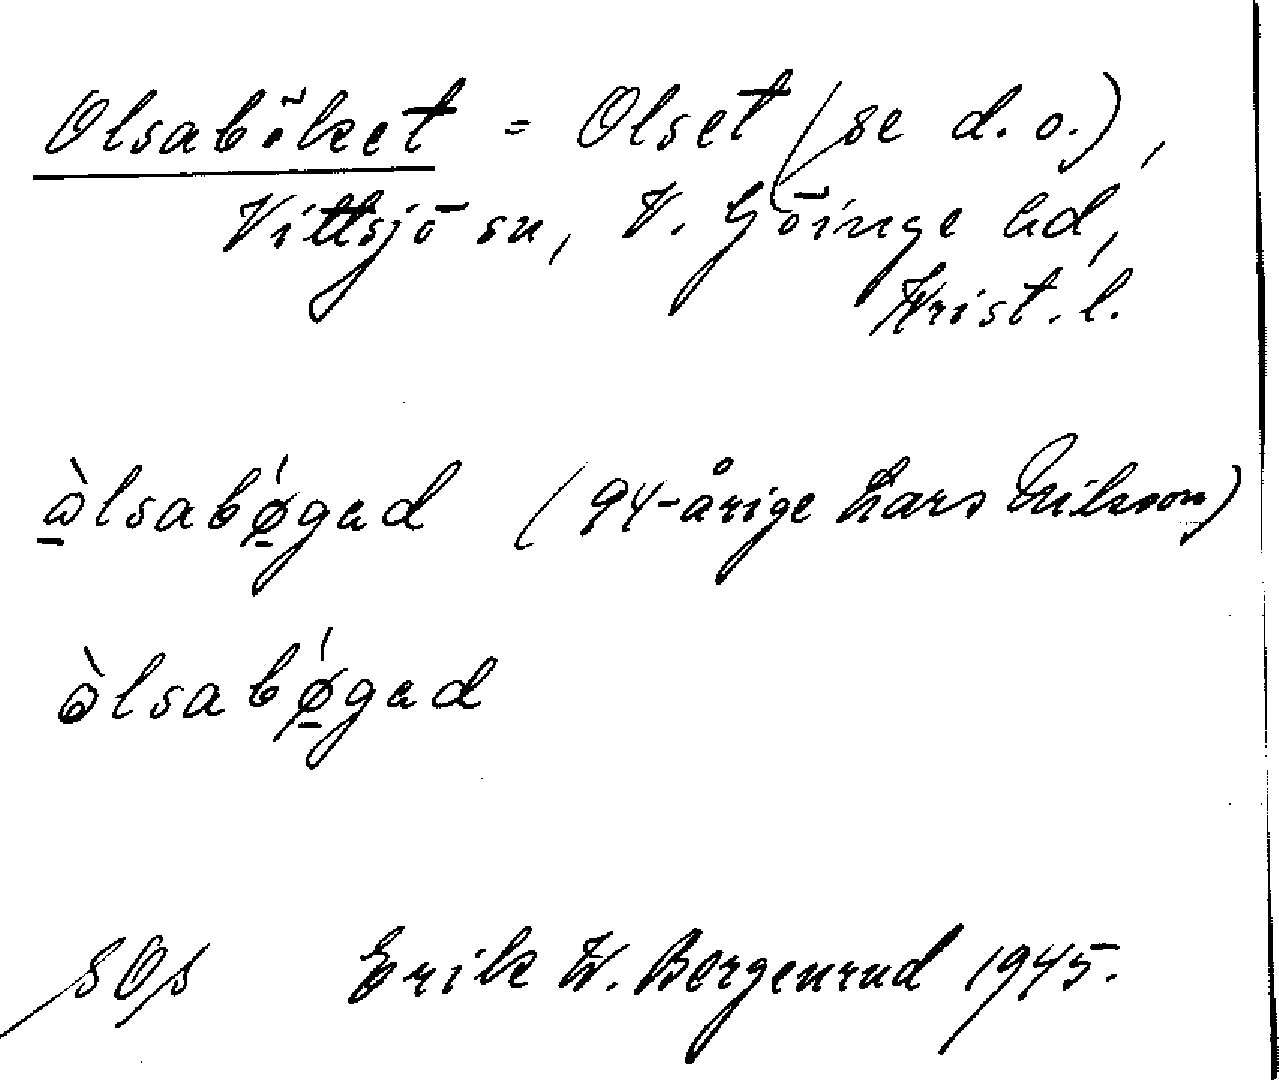 Olsaböket = Olset (se d.o.),
Vittsjö sn, V. Göinge hd,
Krist. l.
òlsabǿgad (94-årige Lars Nilsson)
òlsabǿgad
Erik W. Bergenrud 1945.